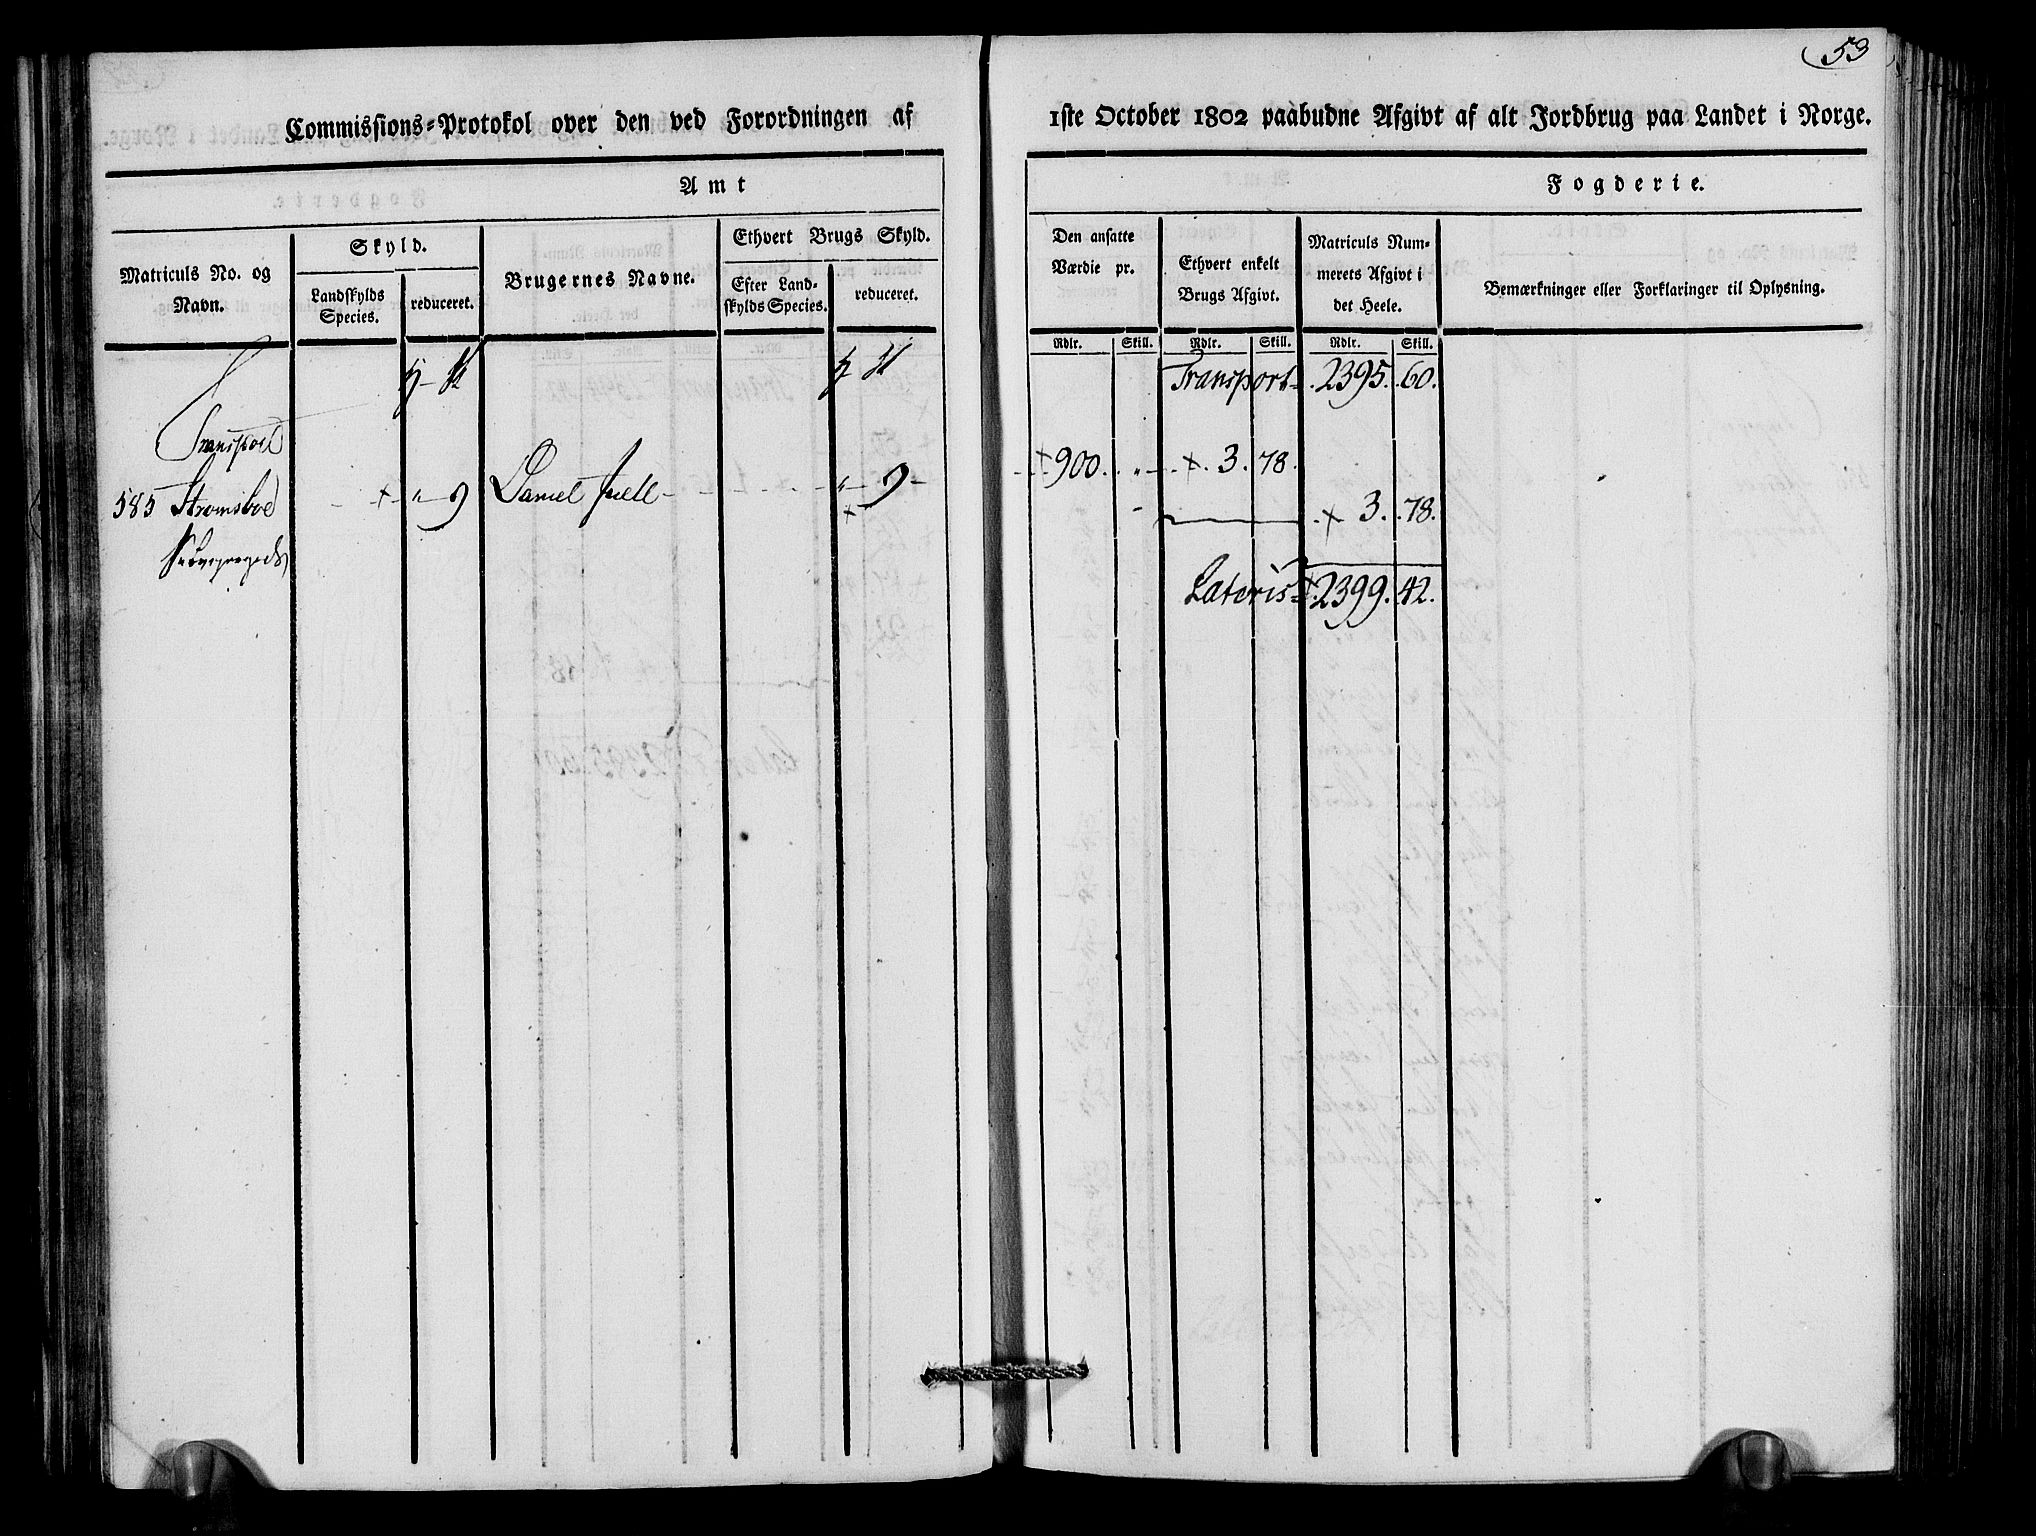 53
Commissions-Protokol over den ved Forordningen af 1ste October 1802 paabudne Afgivt af alt Jordbrug paa Landet i Norge.
Amt
Fogderie.
Matriculs No. og
Navn.
Skyld.
Landskylds
Species.
reduceret.
Brugernes Navne.
Ethvert Brugs Skyld.
Efter Land-
skylds Species.
reduceret.
Den ansatte
Værdie pr.
Ethvert enkelt
Brugs Afgivt.
Matriculs Num-
merets Afgivt i
det Heele.
Bemærkninger eller Forklaringer til Oplysning.
Rdlr. Skill. Rdlr. Skill. Rdlr. Skill.
Transport 2395. 60.
Transport
585 Strømsboe + " 9 Daniel Juell " 9 + 900. " + 3. 78.
+ 3. 78.
Lateris 2399. 42.